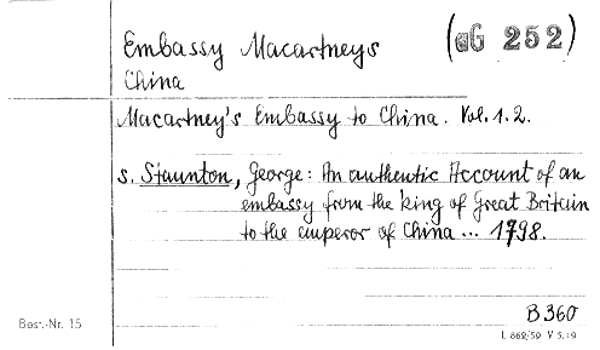 Embassy Macartneys (aG 252)
China
Macartney's Embassy to China. Vol. 1.2.
s. Staunton, George: An authentic Account of an
embassy from the king of Great Britain
to the emperor of China ... 1798.
B 360
Best.-Nr. 15
L 862/59 V 5.19